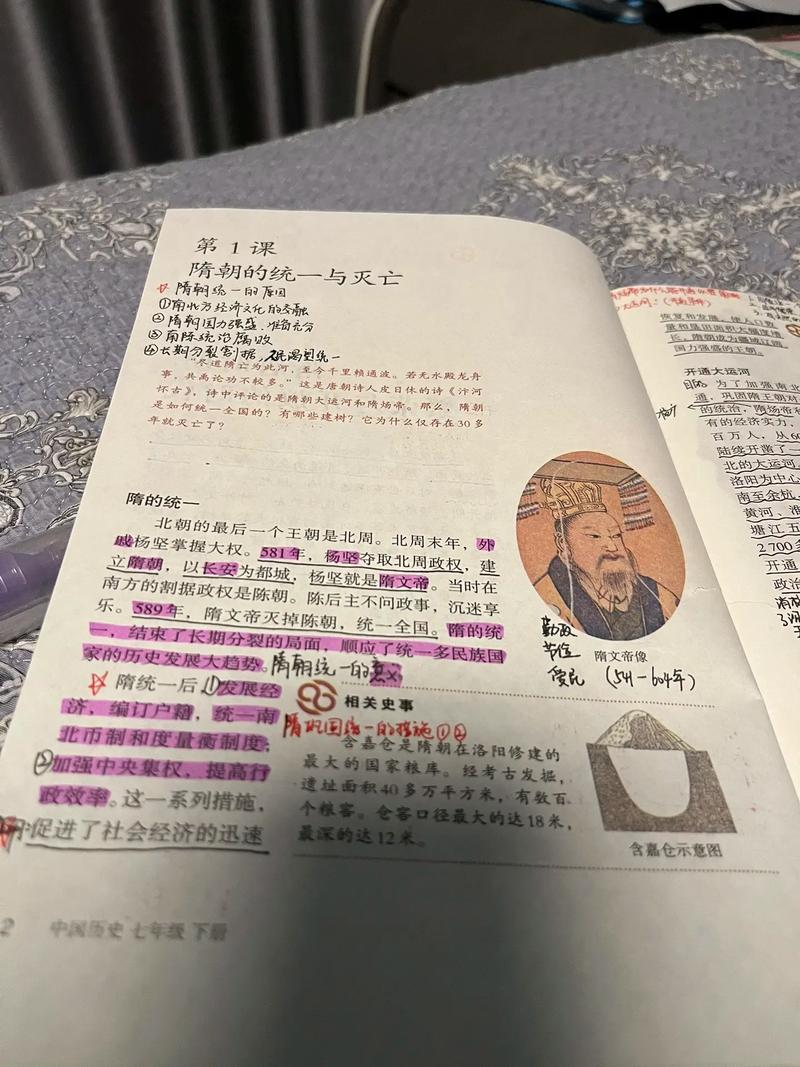 第 1 课
隋朝的统一与灭亡
隋朝统一的原因
①南北方经济文化的交融
②隋朝国力强盛,准备充分
③南陈统治腐败
④长期分裂割据,人民渴望统一
“尽道隋亡为此河,至今千里赖通波。若无水殿龙舟
事,共禹论功不较多。”这是唐朝诗人皮日休的诗《汴河
怀古》,诗中评论的是隋朝大运河和隋炀帝。那么,隋朝
是如何统一全国的?有哪些建树?它为什么仅存在30多
年就灭亡了?
隋的统一
北朝的最后一个王朝是北周。北周末年,外
戚杨坚掌握大权。581年,杨坚夺取北周政权,建
立隋朝,以长安为都城,杨坚就是隋文帝。当时在
南方的割据政权是陈朝。陈后主不问政事,沉迷享
乐。589年,隋文帝灭掉陈朝,统一全国。隋的统
一,结束了长期分裂的局面,顺应了统一多民族国
家的历史发展大趋势。隋朝统一的意义
隋统一后,①发展经
济,编订户籍,统一南
北币制和度量衡制度;
②加强中央集权,提高行
政效率。这一系列措施,
促进了社会经济的迅速
勤政
节俭
爱民
隋文帝像
(541—604年)
相关史事
隋巩固统一的措施①②
含嘉仓是隋朝在洛阳修建的
最大的国家粮库。经考古发掘,
遗址面积40多万平方米,有数百
个粮窖。仓窖口径最大的达18米,
最深的达12米。
含嘉仓示意图
2 中国历史 七年级 下册
恢复和发展,使人口数
量和垦田面积大幅度增
长,隋朝成为疆域辽阔
国力强盛的王朝。
开通大运河
目的
为了加强南北
通,巩固隋王朝对
的统治,隋炀帝
有的经济实力,
百万人,从60
陆续开凿了一
北的大运河
洛阳为中心
南至余杭,
黄河、淮
塘江五
2700多
开通
政治